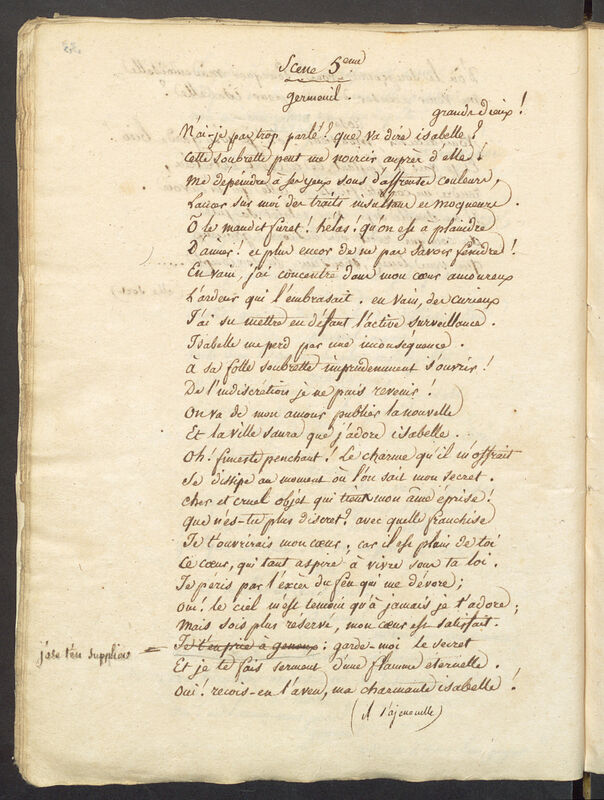 Scene 5eme
germeuil.
grands dieux !
N'ai-je pas trop parlé ? que va dire isabelle ?
Cette soubrette peut me noircir auprès d'elle !
Me dépeindre à ses yeux sous d'affreuses couleurs,
Lancer sur moi des traits insultans et moqueurs.
Ô le maudit furet ! hélas ! qu'on est à plaindre
D'aimer ! et plus encor de ne pas savoir feindre !
En vain, j'ai concentré dans mon cœur amoureux
L'ardeur qui l'embrasait. en vain, des curieux
J'ai su mettre en défaut l'active surveillance.
Isabelle me perd par une inconséquence.
à sa folle soubrette imprudemment s'ouvrir !
De l'indiscrétion je ne puis revenir !
On va de mon amour publier la nouvelle
Et la ville saura que j'adore isabelle.
Oh ! funeste penchant ! Le charme qu'il m'offrait
Se dissipe au moment où l'on sait mon secret.
cher et cruel objet qui tient mon âme éprise !
que n'es-tu plus discret ? avec quelle franchise
Je t'ouvrirais mon cœur, car il est plein de toi
Ce cœur, qui tant aspire à vivre sous ta loi.
Je peris par l'excès du feu qui me dévore ;
Oui ! le ciel m'est témoin qu'à jamais je t'adore ;
Mais sois plus reservé, mon cœur est satisfait.
Je t'en prie à genoux : garde-moi le secret
j'ose t'en supplier
Et je te fais serment d'une flamme eternelle.
Oui ! reçois-en l'aveu, ma charmante isabelle !
(il s'ajenouille)